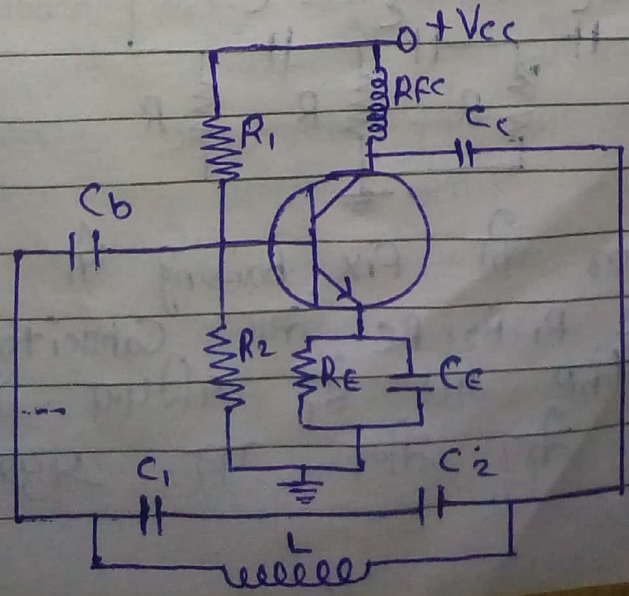 +Vcc
RFC
R1
Cc
Cb
R2
RE
CE
C1
C2
L